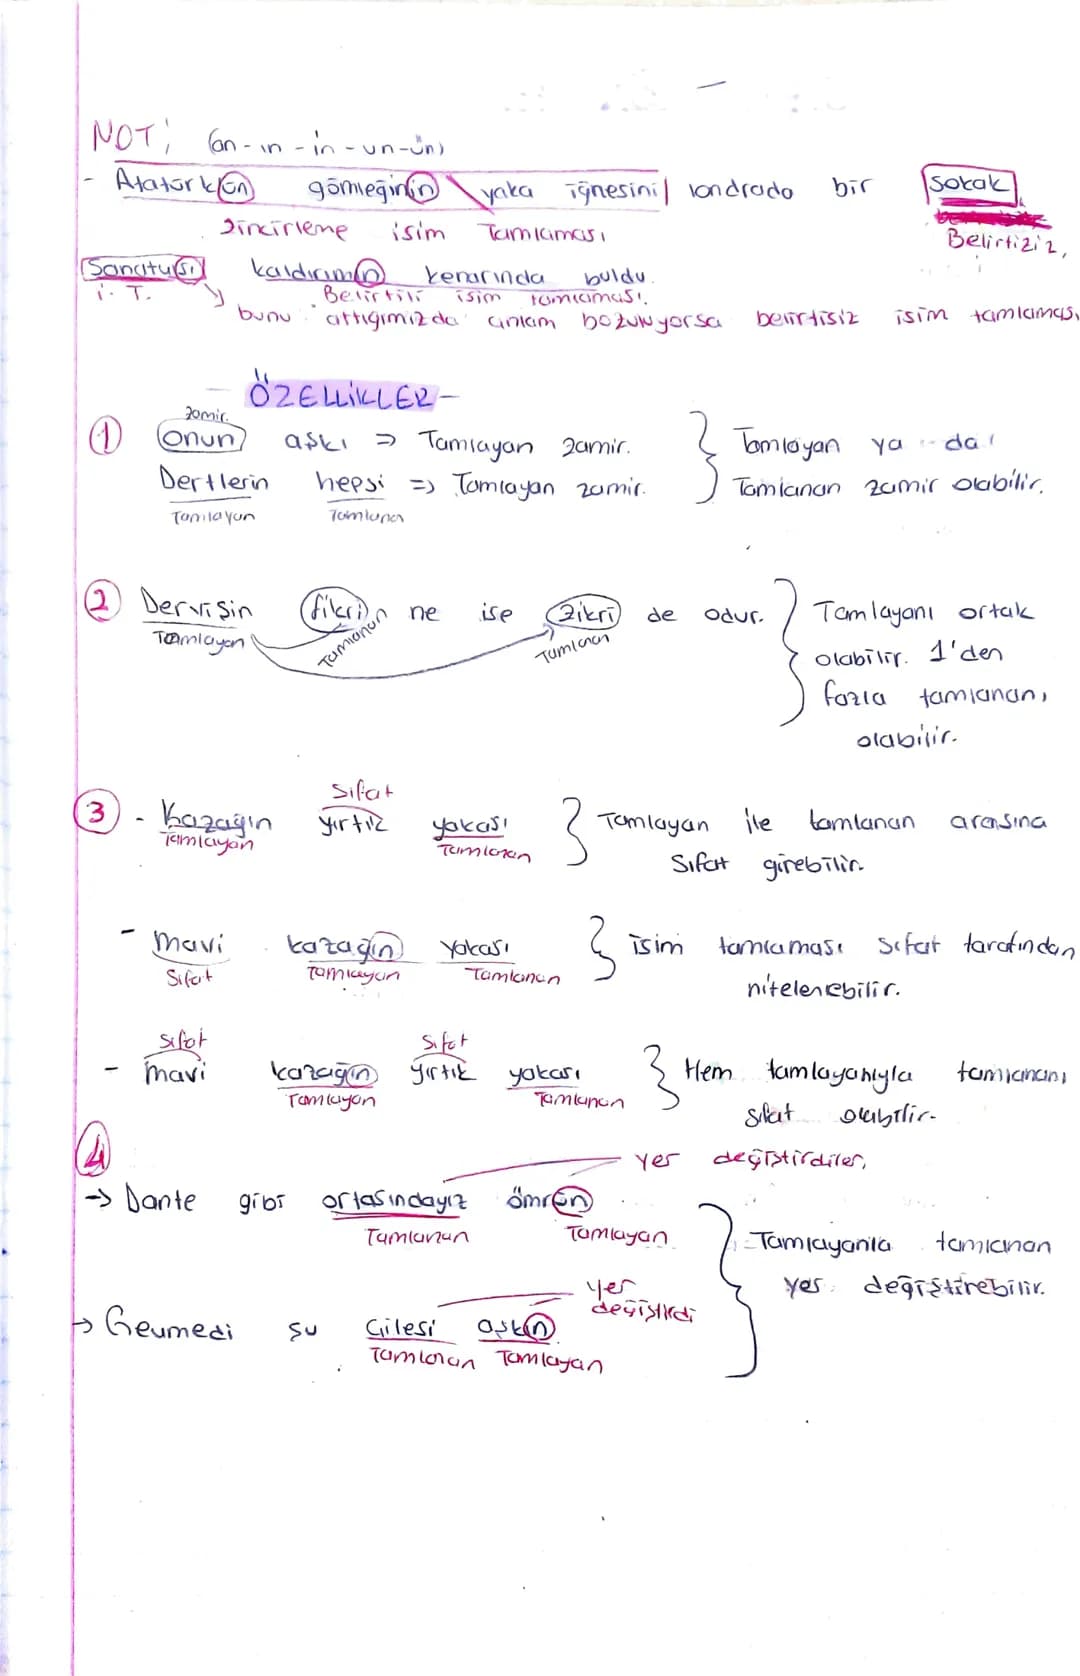 NOT; (an - ın - in - un - ün)
- Atatürkün gömleğinin yaka iğnesini londrada bir sokak
zincirleme isim Tamlaması Belirtisiz,
Sanatçısı kaldırımın kenarında buldu.
i. T. Belirtili isim tamlaması.
bunu attığımızda anlam bozuluyorsa belirtisiz isim tamlaması
- ÖZELLİKLER -
zamir.
① Onun aşkı => Tamlayan zamir. Tamlayan ya da
Dertlerin hepsi => Tamlayan zamir. Tamlanan zamir olabilir.
Tamlayan Tamlanan
② Dervişin fikri ne ise zikri de odur. Tamlayanı ortak
Tamlayan Tamlanan Tamlanan olabilir. 1'den
fazla tamlananı
olabilir.
Sıfat
③ - Kazağın yırtık yakası Tamlayan ile tamlanan arasına
Tamlayan Tamlanan Sıfat girebilir.
- mavi kazağın yakası isim tamlaması sıfat tarafından
Sıfat Tamlayan Tamlanan nitelenebilir.
Sıfat Sıfat
- mavi kazağın yırtık yakası Hem tamlayanıyla tamlananı
Tamlayan Tamlanan sıfat olabilir.
④ yer değiştirdiler,
→ Dante gibi ortasındayız ömrün
Tamlanan Tamlayan Tamlayanla tamlanan
yer değiştirdi yer değiştirebilir.
→ Geçmedi şu Çilesi aşkın
Tamlanan Tamlayan